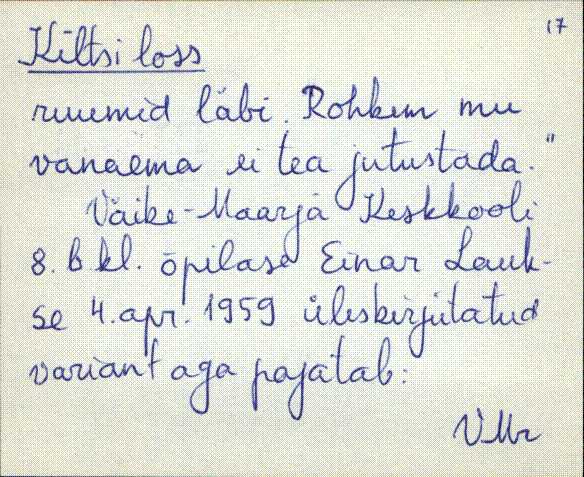 17
Kiltsi loss
ruumid läbi. Rohkem mu
vanaema ei tea jutustada."
Väike-Maarja Keskkooli
8. b kl. õpilase Einar Lauk-
se 4. apr. 1959 üleskirjutatud
variant aga pajatab:
VMr